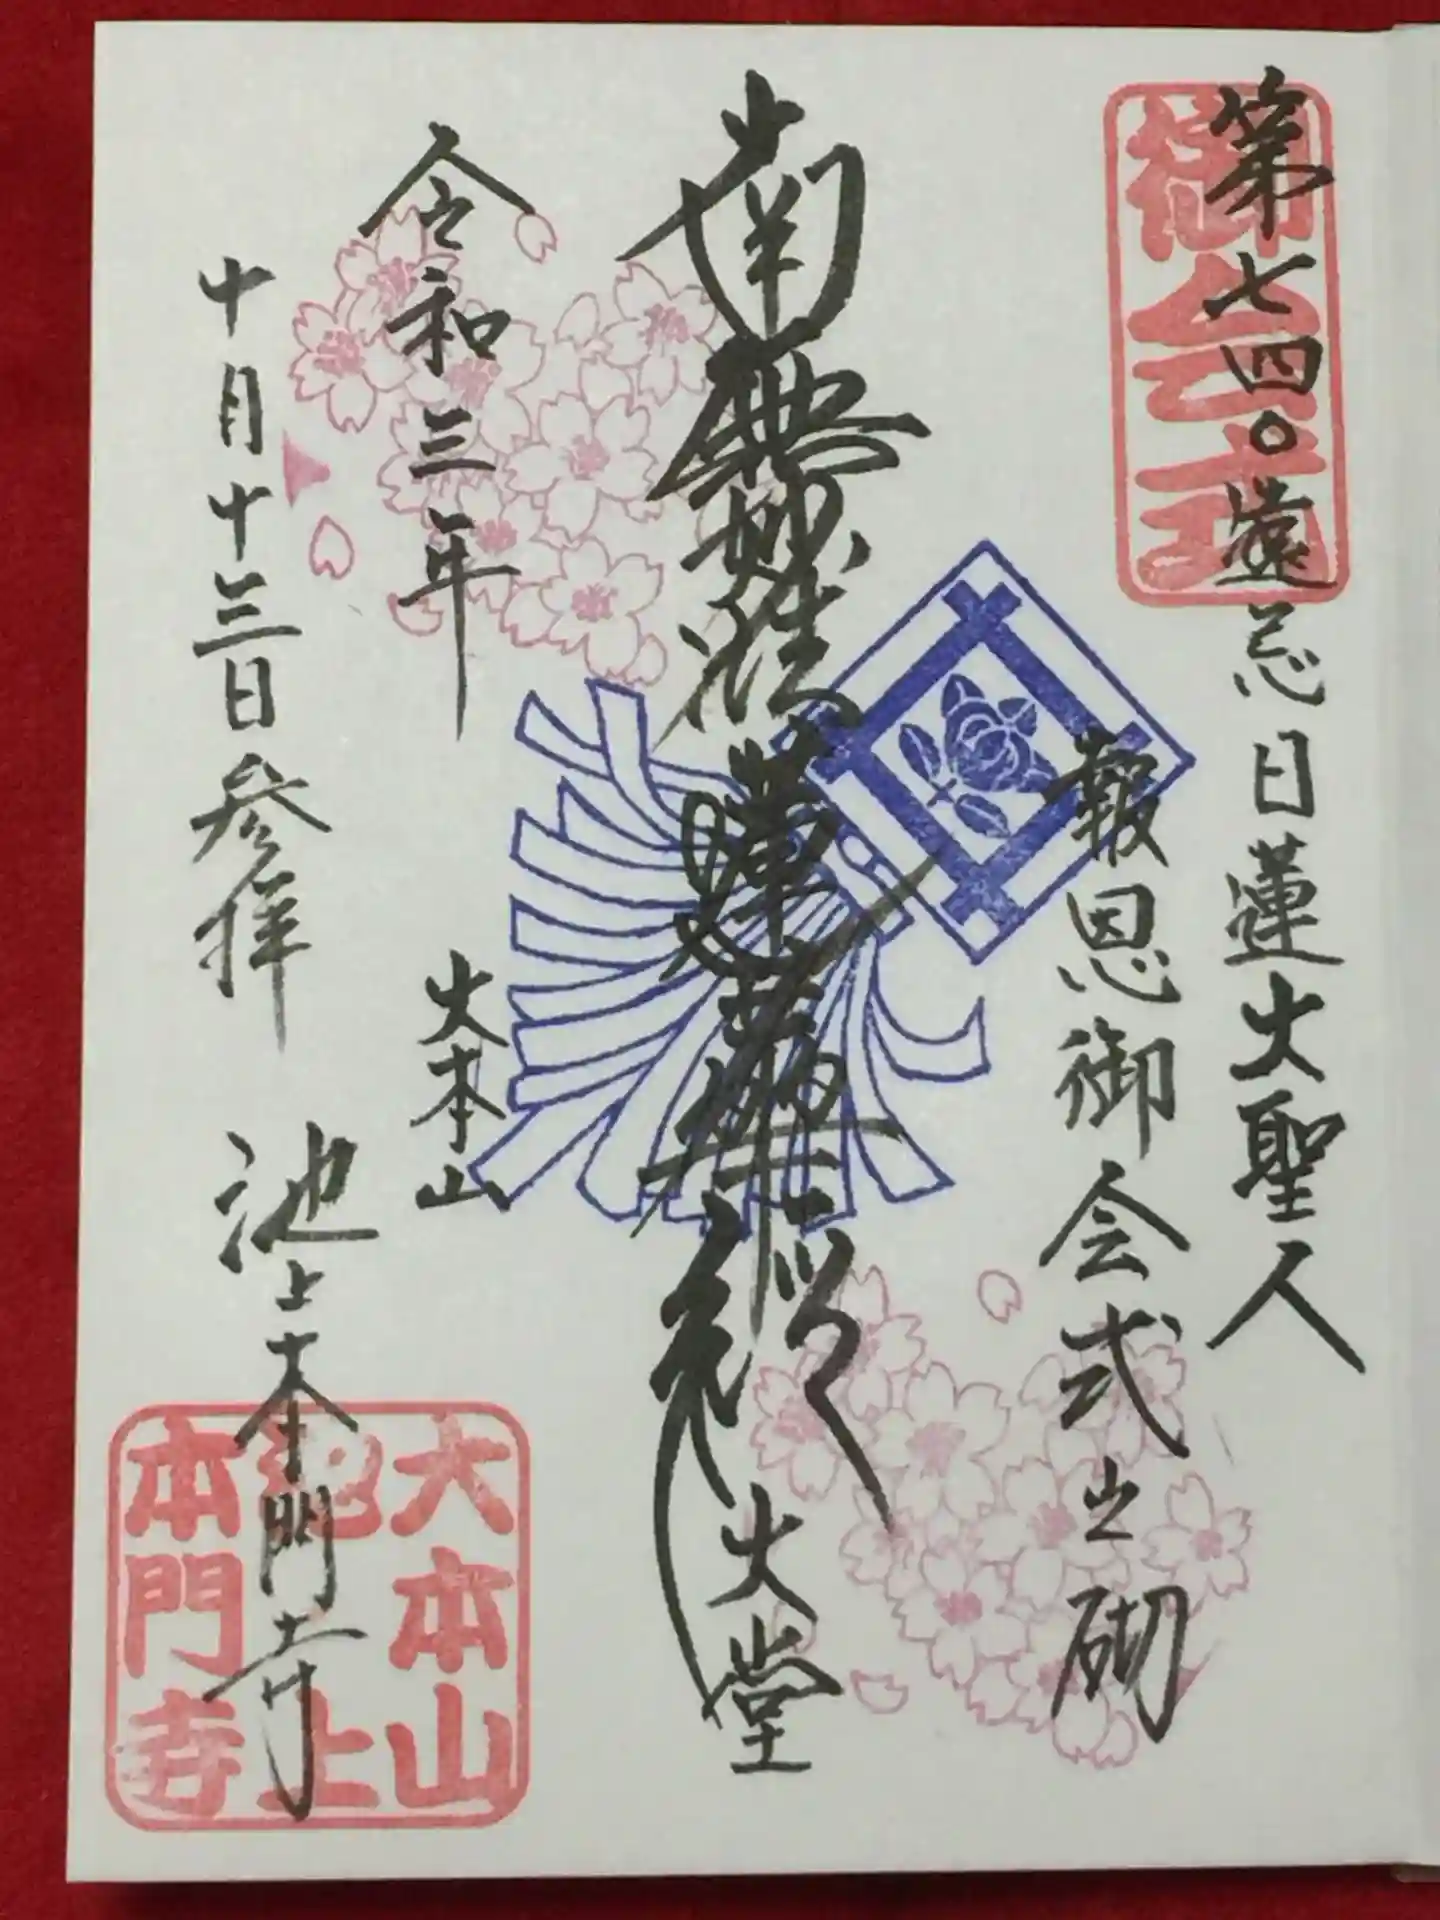 御会式
第七四〇遠忌日蓮大聖人
報恩御会式之砌
南無妙法蓮華経
大堂
令和三年
十月十三日参拝
大本山
池上本門寺
大本山
池上
本門寺